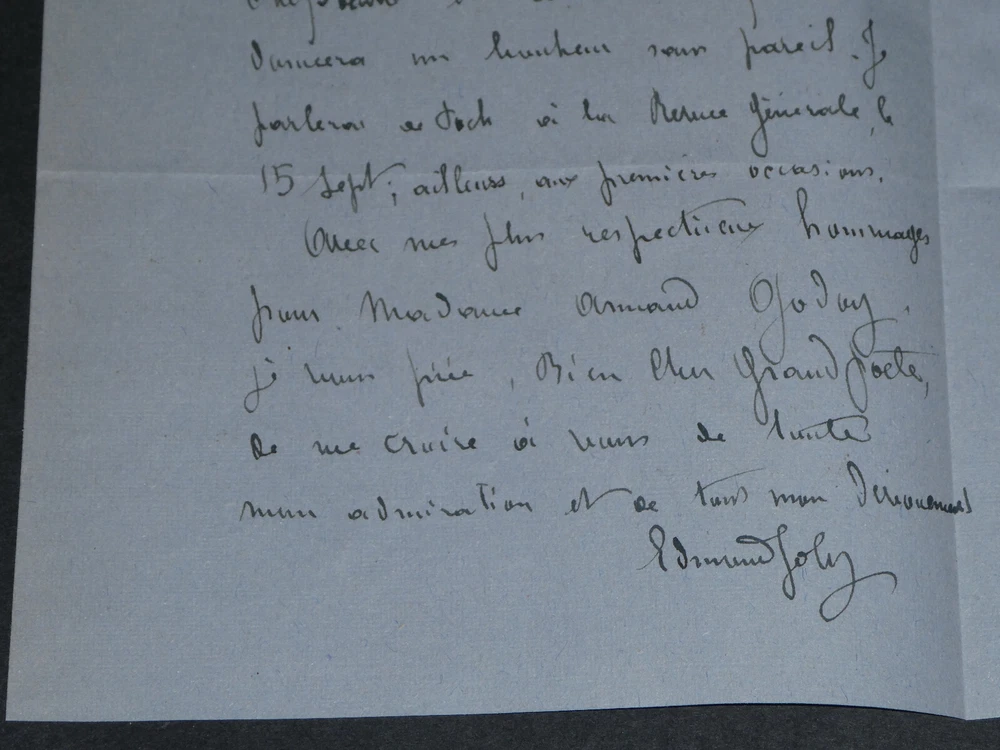 donnera un bonheur sans pareil. Je
parlerai de Foch à la Revue Générale, le
15 Sept; ailleurs, aux premières occasions.
Avec mes plus respectueux hommages
pour Madame Armand Godoy,
je vous prie, Bien Cher Grand Poète,
de me croire à vous de toute
mon admiration et de tout mon dévouement
Edmond Joly